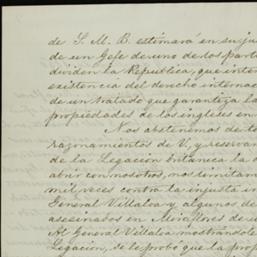 de S. M. B. estimará en su ju
de un Gefe de uno de los parti
dividen la Republica, que inten
existencia del derecho internac
de un tratado que garantiza la
propiedades de los ingleses en
Nos abstenemos de to
razonamientos de V, y reservan
de la Legacion britanica la d
abrir con nosotros, nos limitam
mil veces contra la injusta in
General Villalva y algunos de
asesinados en Miraflores de u
Al General Villalva mostrandole
Legacion, se le probó que la prop